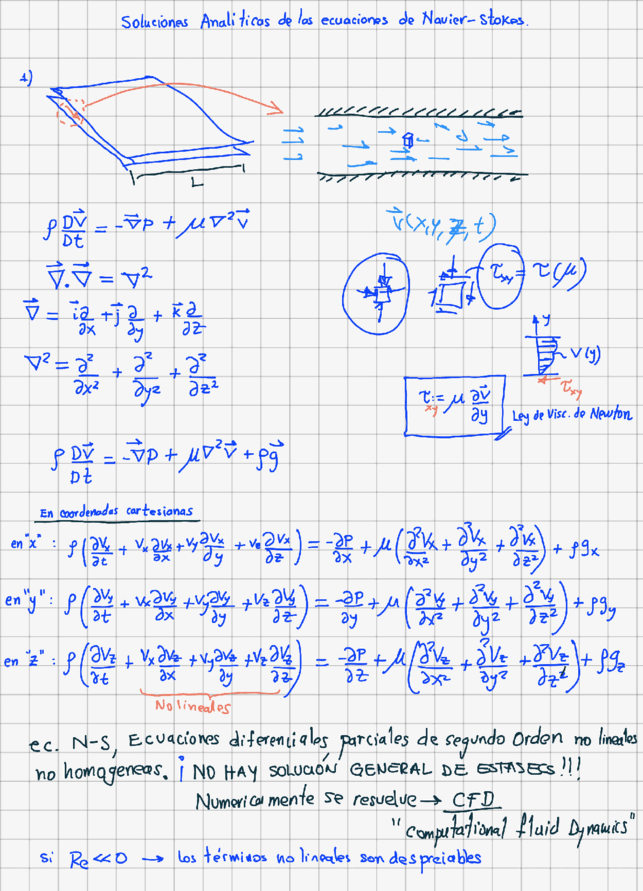 Soluciones Analíticas de las ecuaciones de Navier-Stokes.
1)
L
ρ Dv⃗/Dt = -∇⃗P + μ∇²v⃗
v⃗(x,y,z,t)
∇⃗.∇⃗ = ∇²
τxy = τ(μ)
∇⃗ = i⃗ ∂/∂x + j⃗ ∂/∂y + k⃗ ∂/∂z
y
v(y)
τxy
∇² = ∂²/∂x² + ∂²/∂y² + ∂²/∂z²
τxy := μ ∂v⃗/∂y
Ley de Visc. de Newton
ρ Dv⃗/Dt = -∇⃗P + μ∇²v⃗ + ρg⃗
En coordenadas cartesianas
en "x" : ρ(∂Vx/∂t + Vx ∂Vx/∂x + Vy ∂Vx/∂y + Vz ∂Vx/∂z) = -∂P/∂x + μ(∂²Vx/∂x² + ∂²Vx/∂y² + ∂²Vx/∂z²) + ρgx
en "y" : ρ(∂Vy/∂t + Vx ∂Vy/∂x + Vy ∂Vy/∂y + Vz ∂Vy/∂z) = -∂P/∂y + μ(∂²Vy/∂x² + ∂²Vy/∂y² + ∂²Vy/∂z²) + ρgy
en "z" : ρ(∂Vz/∂t + Vx ∂Vz/∂x + Vy ∂Vz/∂y + Vz ∂Vz/∂z) = -∂P/∂z + μ(∂²Vz/∂x² + ∂²Vz/∂y² + ∂²Vz/∂z²) + ρgz
No lineales
ec. N-S, Ecuaciones diferenciales parciales de segundo Orden no lineales
no homogeneas. ¡ NO HAY SOLUCIÓN GENERAL DE ESTAS ECS !!!
Numericamente se resuelve → CFD
"Computational fluid Dynamics"
si Re << 0 → los términos no lineales son despreciables